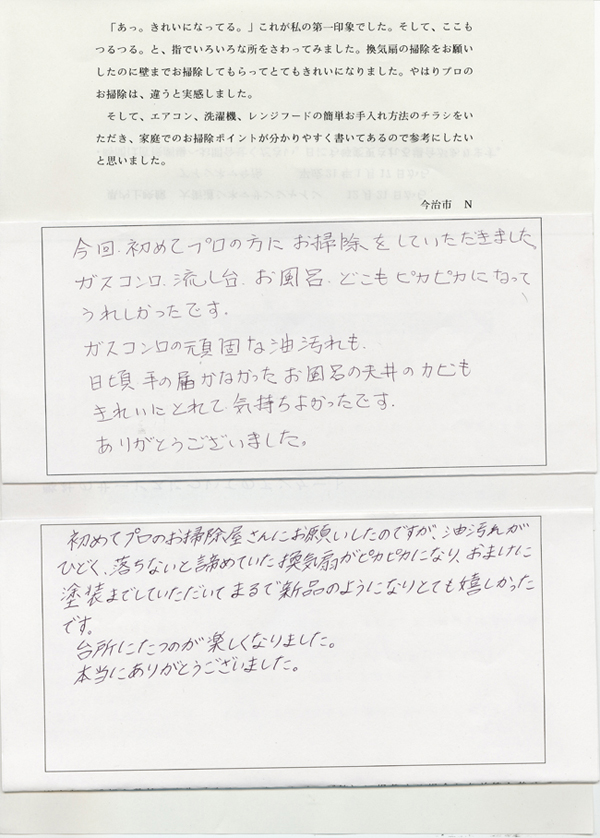 「あっ。きれいになってる。」これが私の第一印象でした。そして、ここも
つるつる。と、指でいろいろな所をさわってみました。換気扇の掃除をお願い
したのに壁までお掃除してもらってとてもきれいになりました。やはりプロの
お掃除は、違うと実感しました。
そして、エアコン、洗濯機、レンジフードの簡単お手入れ方法のチラシをい
ただき、家庭でのお掃除ポイントが分かりやすく書いてあるので参考にしたい
と思いました。
今治市 N
今回、初めてプロの方に お掃除をしていただきました
ガスコンロ、流し台、お風呂、どこもピカピカになって
うれしかったです。
ガスコンロの頑固な油汚れも、
日頃 手の届かなかった お風呂の天井のカビも
きれいにとれて 気持ちよかったです。
ありがとうございました。
初めてプロのお掃除屋さんにお願いしたのですが、油汚れが
ひどく、落ちないと諦めていた換気扇がピカピカになり、おまけに
塗装までしていただいてまるで新品のようになりとても嬉しかった
です。
台所にたつのが楽しくなりました。
本当にありがとうございました。